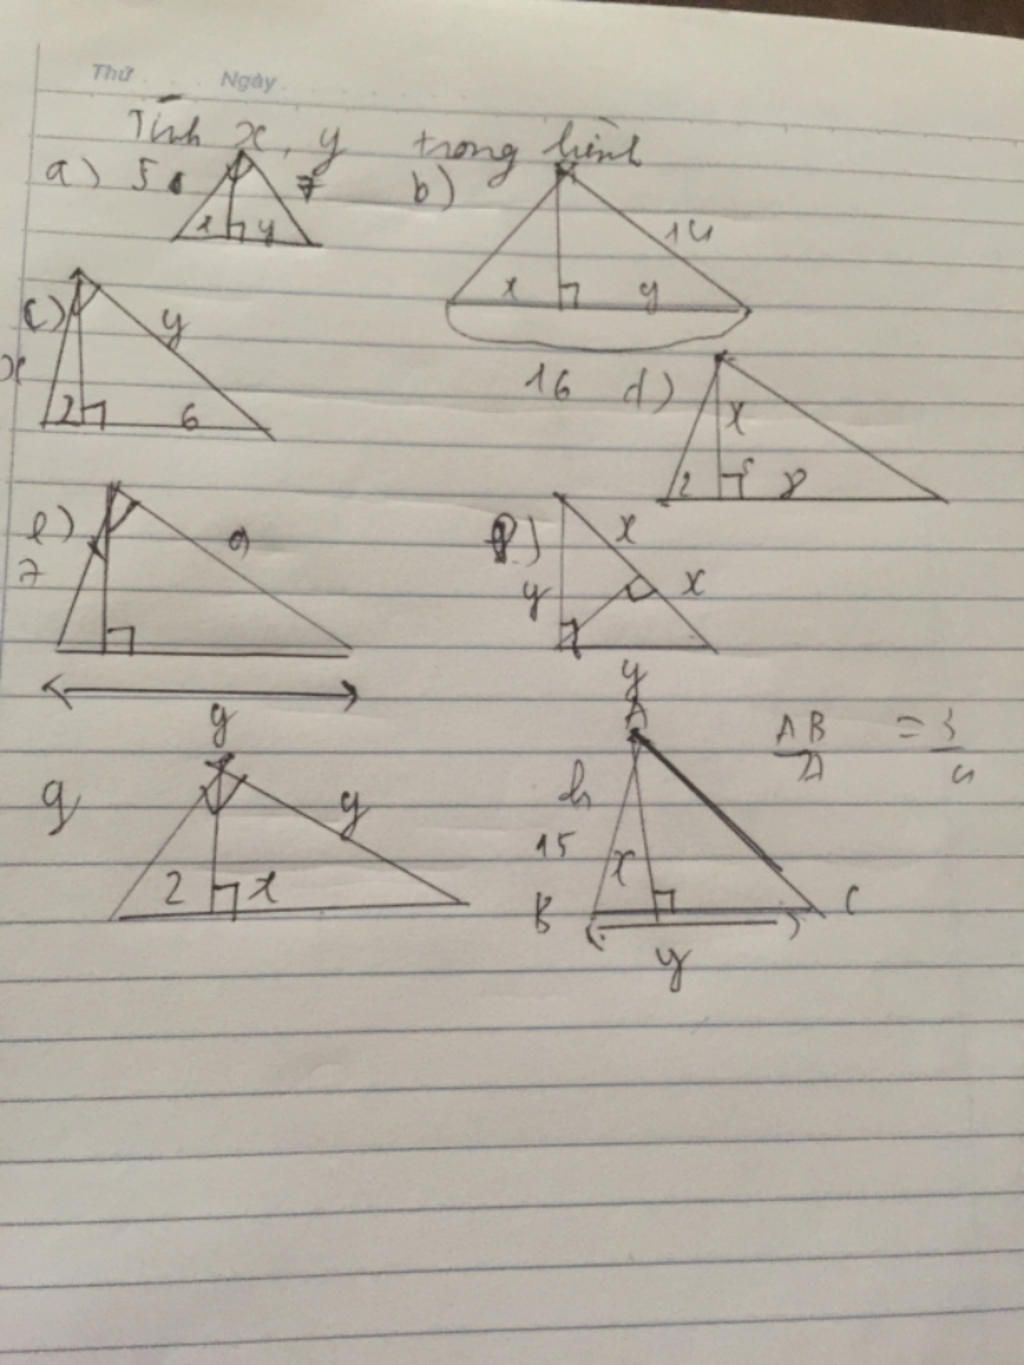 Thứ Ngày
Tính x, y trong hình
a) 5 7
x y
b)
14
x y
16
c)
y
x
2 6
d)
x
2 8
e)
7 9
y
f)
x
y x
y
g
y
2 x
A
h
15
x
B C
y
AB = 3
4